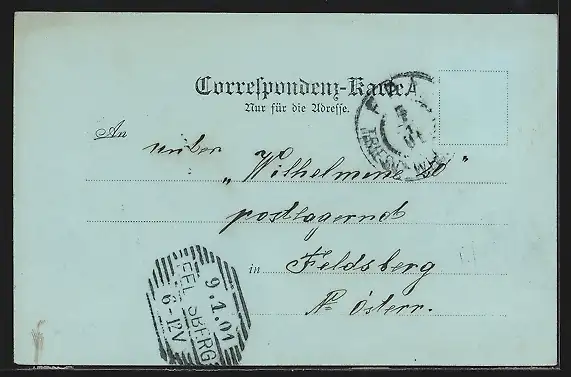 Correspondenz-Karte
Nur für die Adresse.
An
unter
„Wilhelmine 30"
postlagernd
in Feldsberg
N. Österr.
9.1.01
FELDSBERG
6-12V